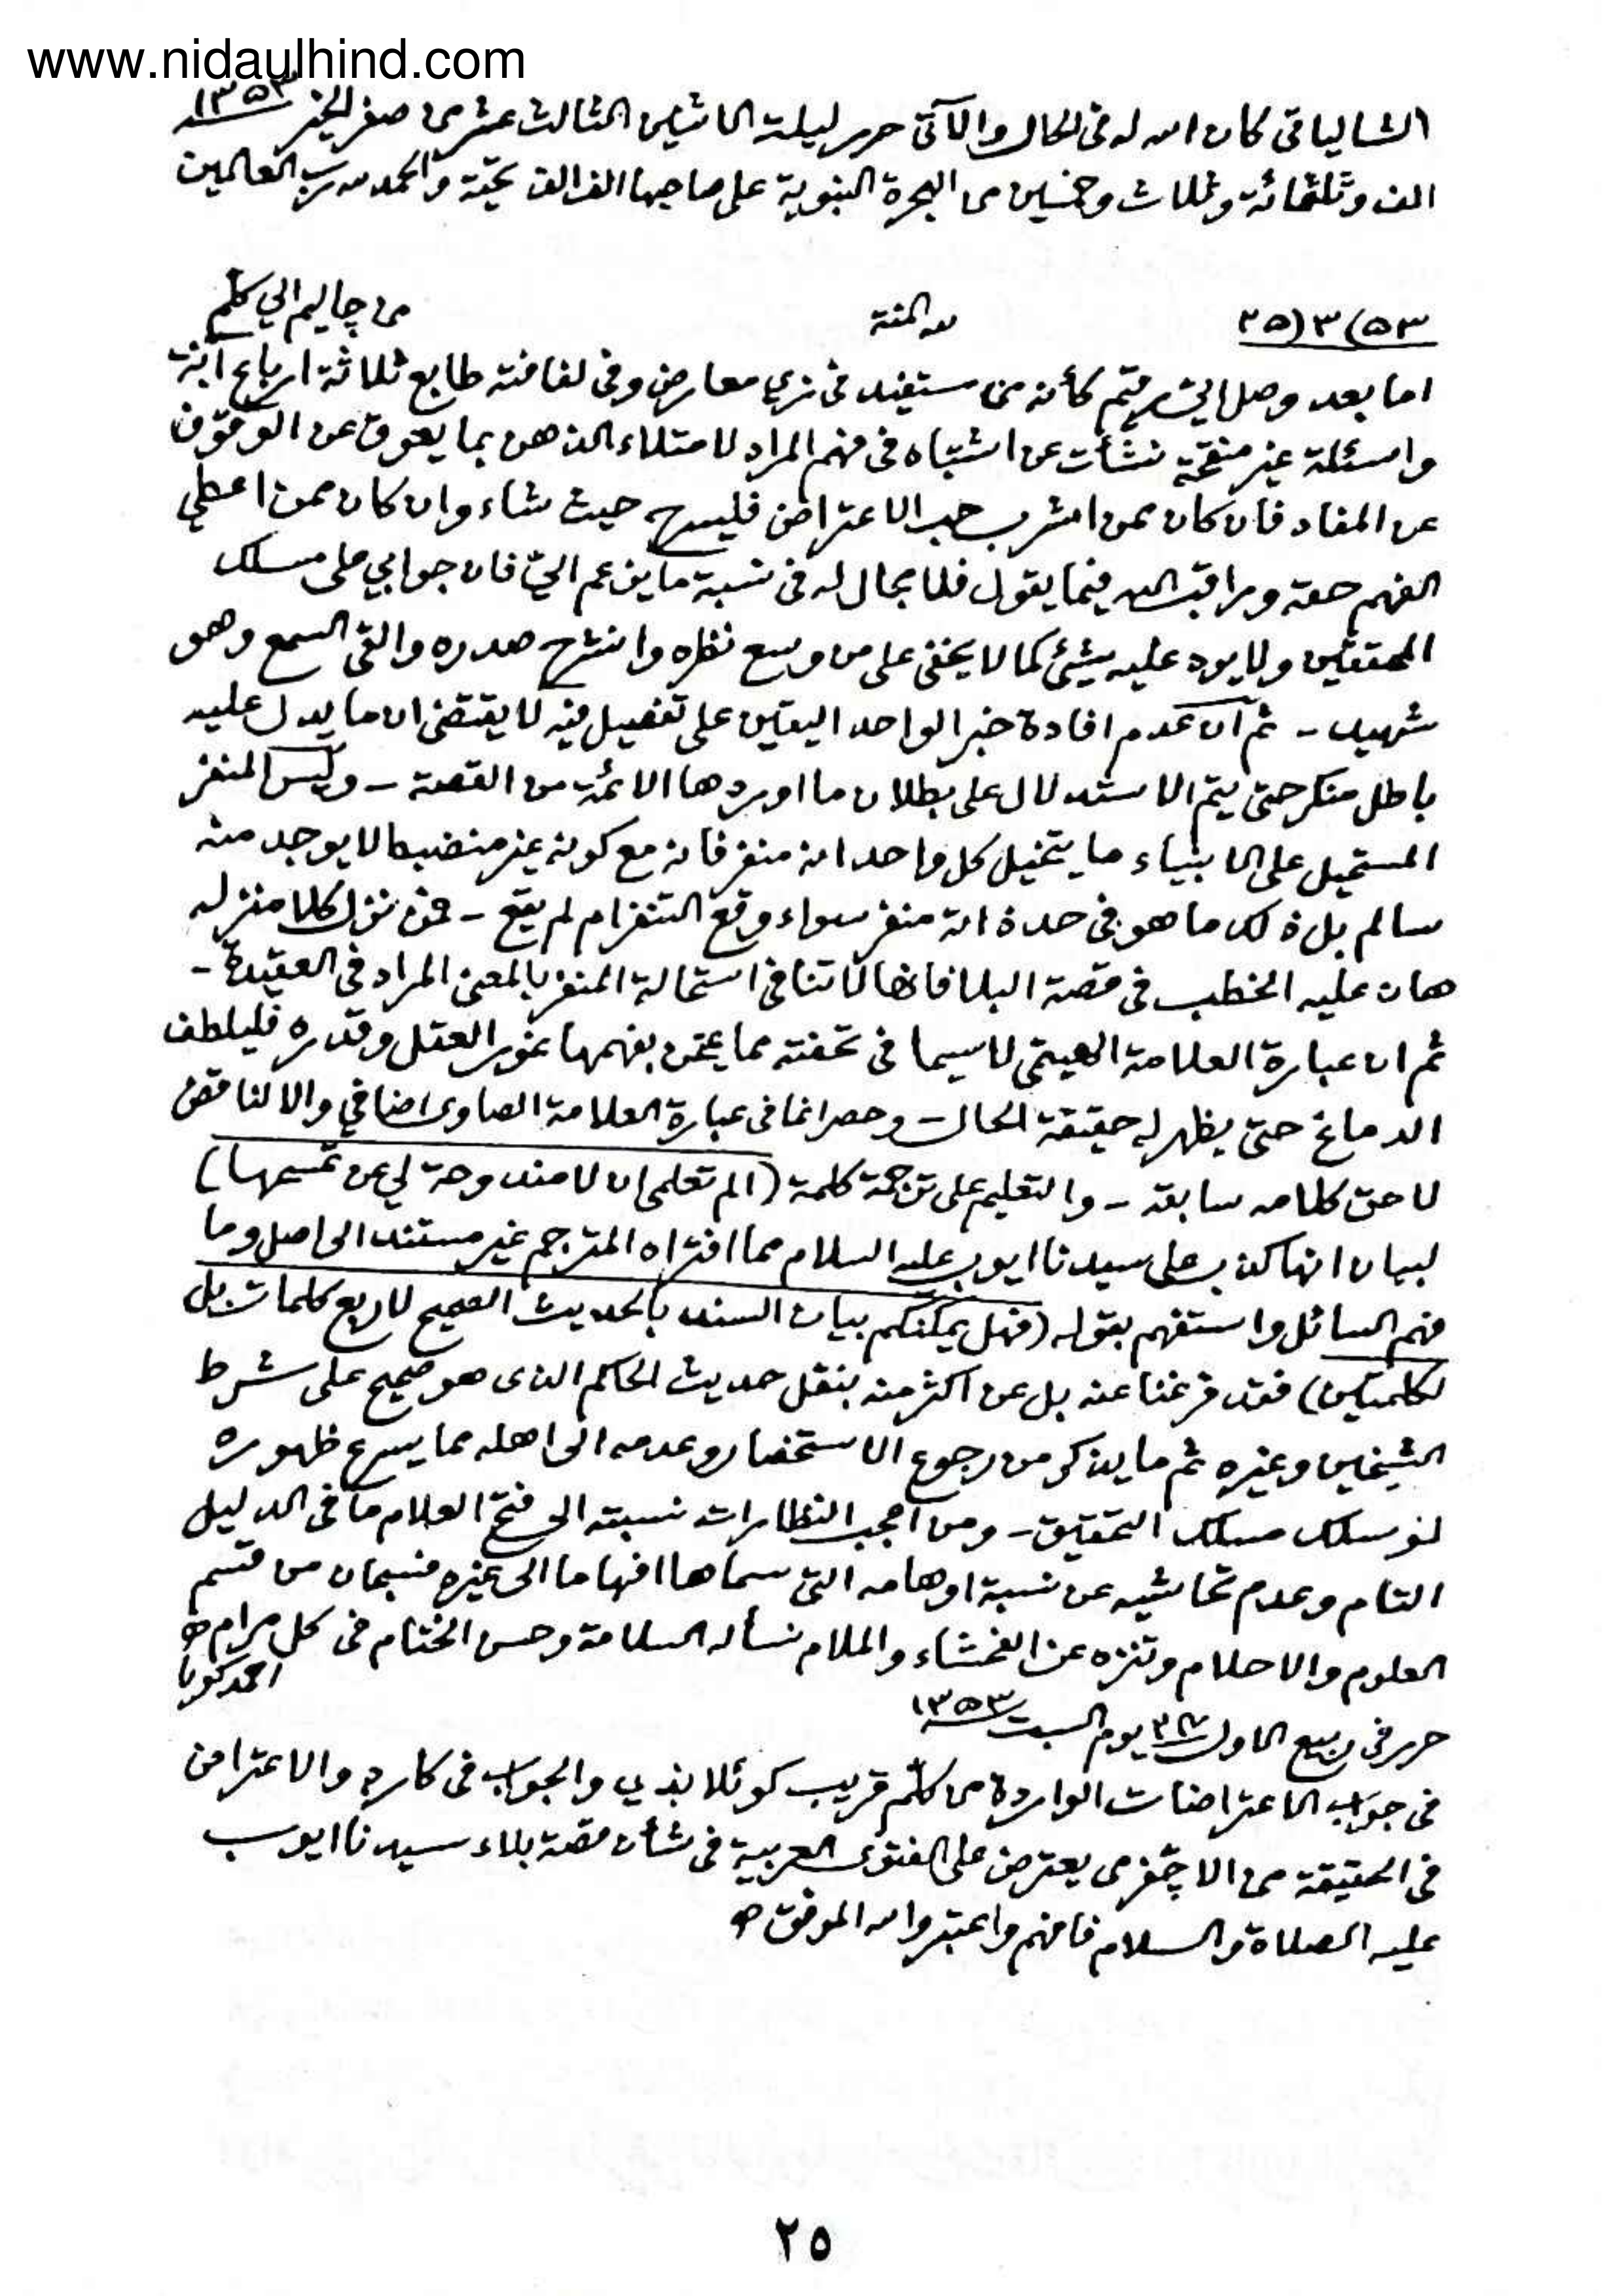 www.nidaulhind.com
الشالياتى كان الله له فى الحال والآتى حرر ليلة الاثنين الثالث عشر من صفر الخير ١٣٥٣
الف وثلثمائة وثلاث وخمسين من الهجرة النبوية على صاحبها الف الف تحية والحمد لله رب العالمين
لله المنة من چاليم الي كلّم
اما بعد وصل الي رقيّم كأنه من مستفيد فى زي معارض وفى لفافته طابع ثلاثة ارباع آنة
واسئلة غير منقحة نشأت عن اشتباه فى فهم المراد لامتلاء الذهن بما يعوق عن الوقوف
عن المفاد فان كان ممن اشرب حب الاعتراض فليسرح حيث شاء وان كان ممن اعطي
الفهم حقه وراقب الله فيما يقول فلا مجال له فى نسبة ما يزعم اليّ فان جوابي على مسلك
المحققين ولا يرد عليه شيئ كما لا يخفى على من وسع نظره وانشرح صدره والقى السمع وهو
شهيد - ثم ان عدم افادة خبر الواحد اليقين على تفصيل فيه لا يقتضى ان ما يدل عليه
باطل منكر حتى يتم الاستدلال على بطلان ما اوردها الائمة من القصة - وليس المنفر
المستحيل على الانبياء ما يتخيل كل واحد انه منفر فانه مع كونه غير منضبط لا يوجد منه
سالم بل ذلك ما هو فى حد ذاته منفر سواء وقع التنفر ام لم يقع - فمن نزل كلا منزله
هان عليه الخطب فى قصة البلا فانها لا تنافى استحالة المنفر بالمعنى المراد فى العقيدة -
ثم ان عبارة العلامة الهيتمى لا سيما فى تحفته مما يمتحن بفهمها غور العقل وقدره فليلطف
الدماغ حتى يظهر له حقيقة الحال - وحصر انما فى عبارة العلامة الصاوى اضافي والا لناقض
لاحق كلامه سابقه - والتعليم على ترجمة كلمة (الم تعلمى ان لا مندوحة لي عن تمسحها)
لبيان انها كذب على سيدنا ايوب عليه السلام مما افتراه المترجم غير مستند الى اصل وما
فهم السائل واستفهم بقوله (فهل يمكنكم بيان السند بالحديث الصحيح لاربع كلمات بل
لكلمتين) فقد فرغنا عنه بل عن اكثر منه بنقل حديث الحاكم الذى هو صحيح على شرط
الشيخين وغيره ثم ما يذكر من رجوع الاستحضار وعدمه الى اهله مما يسرع ظهوره
لو سلك مسلك التحقيق - ومن اعجب النظارات نسبته الى فتح العلام ما فى الدليل
التام وعدم تحاشيه عن نسبة اوهامه التى سماها افهاما الى غيره فسبحان من قسم
العلوم والاحلام وتنزه عن الفحشاء والملام نسأله السلامة وحسن الختام فى كل مرام
احمد كويا
حرر فى ربيع الاول يوم السبت ١٣٥٣
فى جواب الاعتراضات الواردة من كلّم قريب كوئلاندي والجواب فى كارد والاعتراض
فى الحقيقة من يعترض على الفتوى العربية فى شأن قصة بلاء سيدنا ايوب
عليه الصلاة والسلام فافهم واعتبر والله الموفق
٢٥